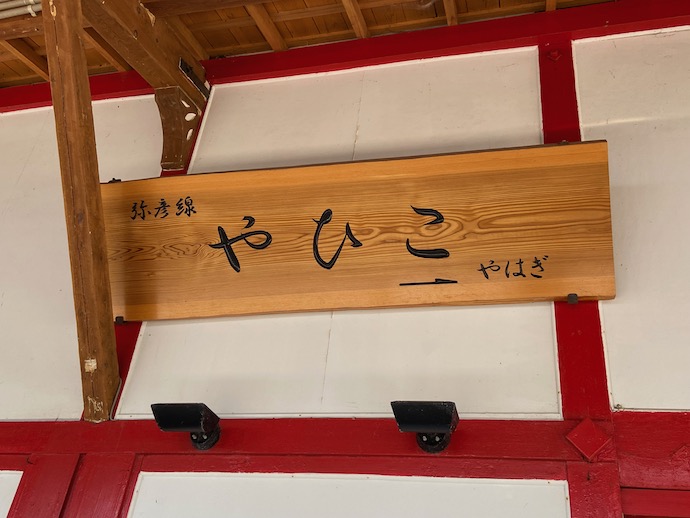 弥彦線
やひこ
→ やはぎ